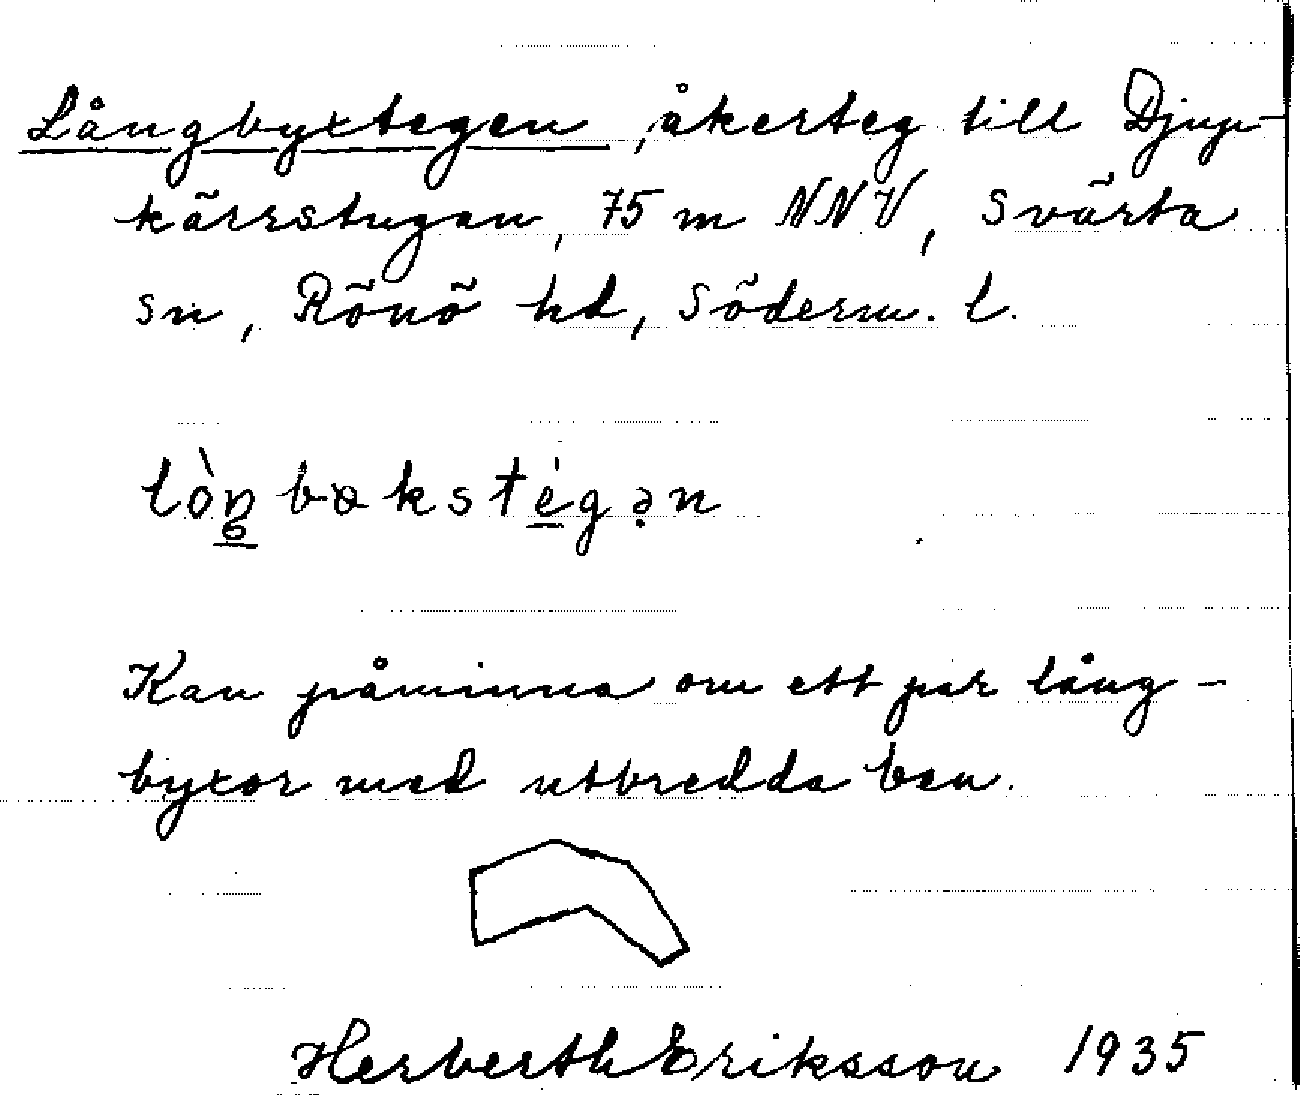 Långbyxtegen, åkerteg till Djup-
kärrstugan, 75 m NNV, Svärta
sn, Rönö hd, Söderm. l.
Kan påminna om ett par lång-
byxor med utbredda ben.
Herberth Eriksson 1935